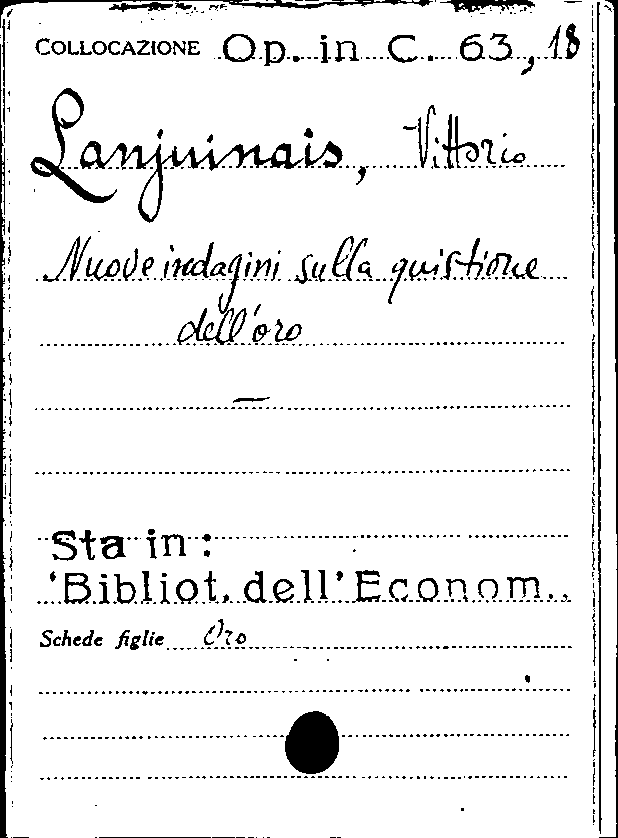 COLLOCAZIONE Op. in C. 63, 18
Lanjuinais, Vittorio
Nuove indagini sulla quistione
dell'oro
—
Sta in:
'Bibliot. dell' Econom..
Schede figlie Oro